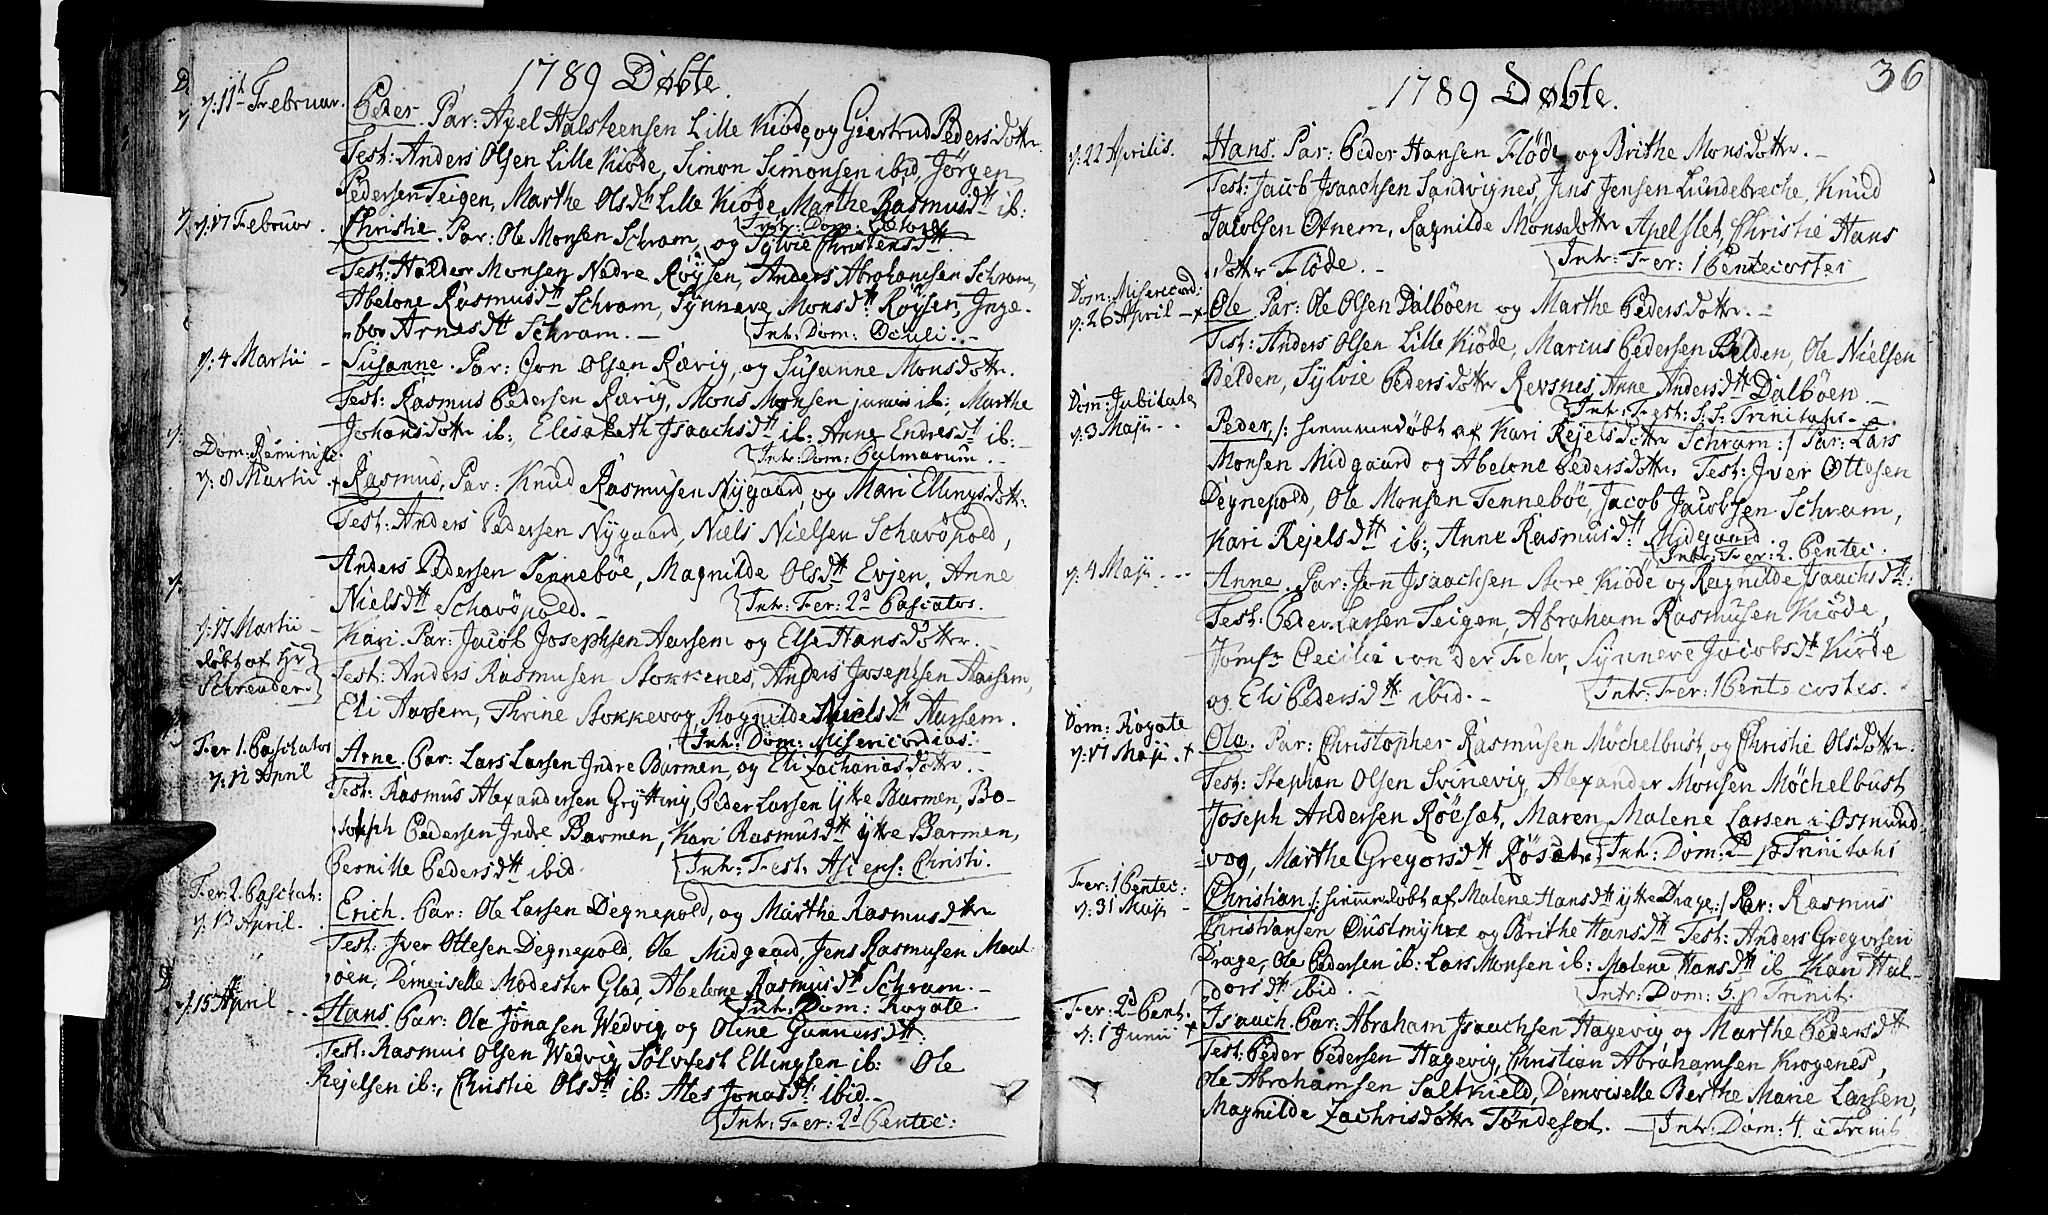 1789 Døbte.
D: 11t Februar.
Peder. Par: Axel Halsteensen Lille Kiöde, og Giertrud Pedersdotter.
Test: Anders Olsen Lille Kiöde, Simon Simonsen ibid, Jörgen
Pedersen Teigen, Marthe Olsdtt Lille Kiöde, Marthe Rasmusdtt ib:
Intr: Dom: Esto
d: 17 Februar.
Christie. Par: Ole Monsen Schram, og Sylvie Christensdtt
Test: Haldor Monsen Nedre Röysen, Anders Abrahamsen Schram,
Abelone Rasmusdtt Schram, Synneve Monsdtt Röysen, Inge-
bor Arnesdtt Schram. —
Intr: Dom: Oculi. —
d: 4 Martii —
Susanne. Par: Jon Olsen Rærig, og Susanne Monsdotter.
Test: Rasmus Pedersen Rærig, Mons Monsen junior ib:, Marthe
Johansdotter ib:, Elisabeth Isaachsdtt ib: Anne Endresdtt ib: —
Intr: Dom: Palmarum. —
Dom: Reminisc.
d: 8 Martii.
Rasmus, Par: Knud Rasmusen Nygaard, og Mari Ellingsdotter.
Test: Anders Pedersen Nygaard, Niels Nielsen Scharöpold,
Anders Pedersen Tenneböe, Magnilde Olsdtt Evjen, Anne
Nielsdtt Scharöpold. —
Intr: Fer: 2d Pascatos.
d: 17 Martii —
døbt af Hr
Schreuder.
Kari. Par: Jacob Josephsen Aarsem og Else Hansdotter. —
Test: Anders Rasmusen Stokkenes, Anders Josephsen Aarsem,
Eli Aarsem, Thrine Stokkevog, Rognilde Nielsdtt Aarsem.
Intr: Dom: Misericordias:
Fer 1. Paschatos
d: 12 April
Arne. Par: Lars Larsen Indre Barmen, og Eli Zachariasdotter. —
Test: Rasmus Alexandersen Grytting, Peder Larsen Ytre Barmen, Jo-
seph Pedersen Indre Barmen, Kari Rasmusdtt Ytre Barmen,
Pernille Pedersdtt ibid.
Intr: Fest: Ascens: Christi.
Fer: 2. Paschat:
d: 13 April.
Erich. Par: Ole Larsen Degnepold, og Marthe Rasmusdotter
Test: Iver Ottesen Degnepold, Ole Midgaard, Jens Rasmusen
Demoiselle Modester Glad, Abelone Rasmusdtt Schram. —
Intr: Dom: Rogate.
d: 15 April
Hans. Par: Ole Jonasen Wedvig og Oline Gunnersdtt.
Test: Rasmus Olsen Wedvig, Solvfest Ellingsen ib: Ole
Rejelsen ib:, Christie Olsdtt ib: Ales Jonasdtt ibid. —
Intr: Fer: 2d Pentec:
1789 Døbte.
36
d: 22 Aprilis.
Hans. Par: Peder Hansen Flöde og Brithe Monsdotter. —
Test: Jacob Isaachsen Sandvignes, Jens Jensen Lundebreche, Knud
Jacobsen Otnem, Ragnilde Monsdotter Apelslet, Christie Hans
dotter Flöde. —
Intr: Fer: 1 Pentecostes
Dom: Misericord:
d: 26 April —
Ole. Par: Ole Olsen Dalböen og Marthe Pedersdotter. —
Test: Anders Olsen Lille Kiöde, Marius Pedersen Belden, Ole Nielsen
Belden, Sylvie Pedersdotter Revsnes, Anne Andersdtt Dalböen. —
Intr: Fest: S: S: Trinitatis —
Dom: Jubilate
d: 3 Maji —
Peder, /: hiemmedøbt af Kari Rejelsdotter Schram :/ Par: Lars
Monsen Midgaard og Abelone Pedersdotter, Test: Iver Ottesen
Degnepold, Ole Monsen Tenneböe, Jacob Jacobsen Schram,
Kari Rejelsdtt ib:, Anne Rasmusdtt Midgaard.
Intr: Fer: 2. Pentec:
d: 4 Maji —
Anne. Par: Jon Isaachsen Store Kiöde og Ragnilde Isaachsdtt.
Test: Peder Larsen Teigen, Abraham Rasmusen Kiöde,
Jomfr Cecilia von der Fehr, Synneve Jacobsdtt Kiöde
og Eli Pedersdtt ibid. —
Intr: Fer: 1 Pentecostes.
Dom: Rogate
d: 17 Maji.
Ole. Par: Christopher Rasmusen Möchelbust, og Christie Olsdotter.
Test: Stephan Olsen Svinevig, Alexander Monsen Möchelbust,
Joseph Andersen Röesæt, Maren Malene Larsen i Osmund-
vog, Marthe Gregorsdtt Rösæt.
Intr: Dom: 2d p Trinitatis
Fer: 1 Pentec:
d: 31 Maji —
Christian /: hiemmedøbt af Malene Hansdtt Ytre Drage :/ Par: Rasmus
Christiansen Oustmyhre og Brithe Hansdtt Test: Anders Gregorsen
Drage, Ole Pedersen ib: Lars Monsen ib: Malene Hansdtt ib. Kari Hal-
dorsdtt ibid. —
Intr: Dom: 5. p Trinit.
Fer: 2d Pent.
d: 1 Junii
Isaach. Par: Abraham Isaachsen Hagevig og Marthe Pedersdtt
Test: Peder Pedersen Hagevig, Christian Abrahamsen Krogenes,
Ole Abrahamsen Saltkield, Demoiselle Berthe Marie Larsen,
Magnilde Zachrisdotter Töndesøl. —
Intr: Dom: 4. a Trinit